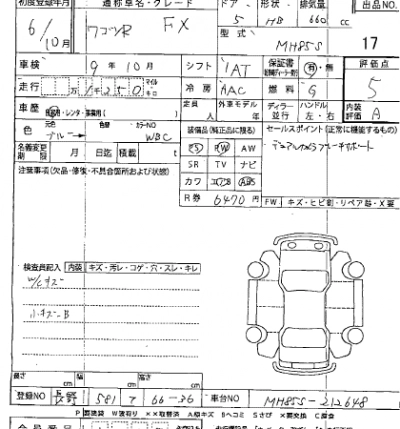 初度登録年月 通称車名・グレード ドア 形状 排気量 出品NO.
6/10月 ワゴンR FX 5 HB 660 cc
型式 MH85S 17
車検 9年10月 シフト IAT 保証書 有・無 評価点
走行 万 1250 マイル キロ 冷房 AAC 燃料 G 5
車歴 自家用・レンタ・事業用( ) 定員 人 外車モデル 年 ディーラー 並行 ハンドル 左・右 内装評価
色 元色 ブルー 色替 カラーNO WBC 装備品(純正品に限る) セールスポイント(正常に機能するもの) A
名義変更期限 月 日迄 積載 t PS PW AW デュアルカメラブレーキサポート
注意事項(欠品・修検・不具合箇所および状態) SR TV ナビ
カワ エアB ABS
R券 6470円 FW キズ・ヒビ割・リペア跡・X要
検査員記入 内装 キズ・汚レ・コゲ・穴・スレ・キレ
小キズB
長さ cm 幅 cm 高さ cm
登録NO 長野 581 66-36 車台NO MH85S-212648
P要塗装 W波有り ××取替済 A線キズ Bヘコミ Sさび ×要交換 C腐食
会員番号